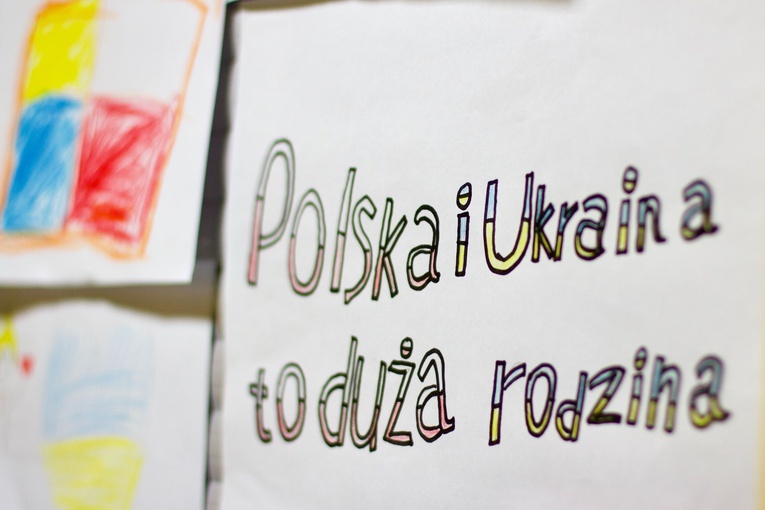 Polska i Ukraina
to duża rodzina